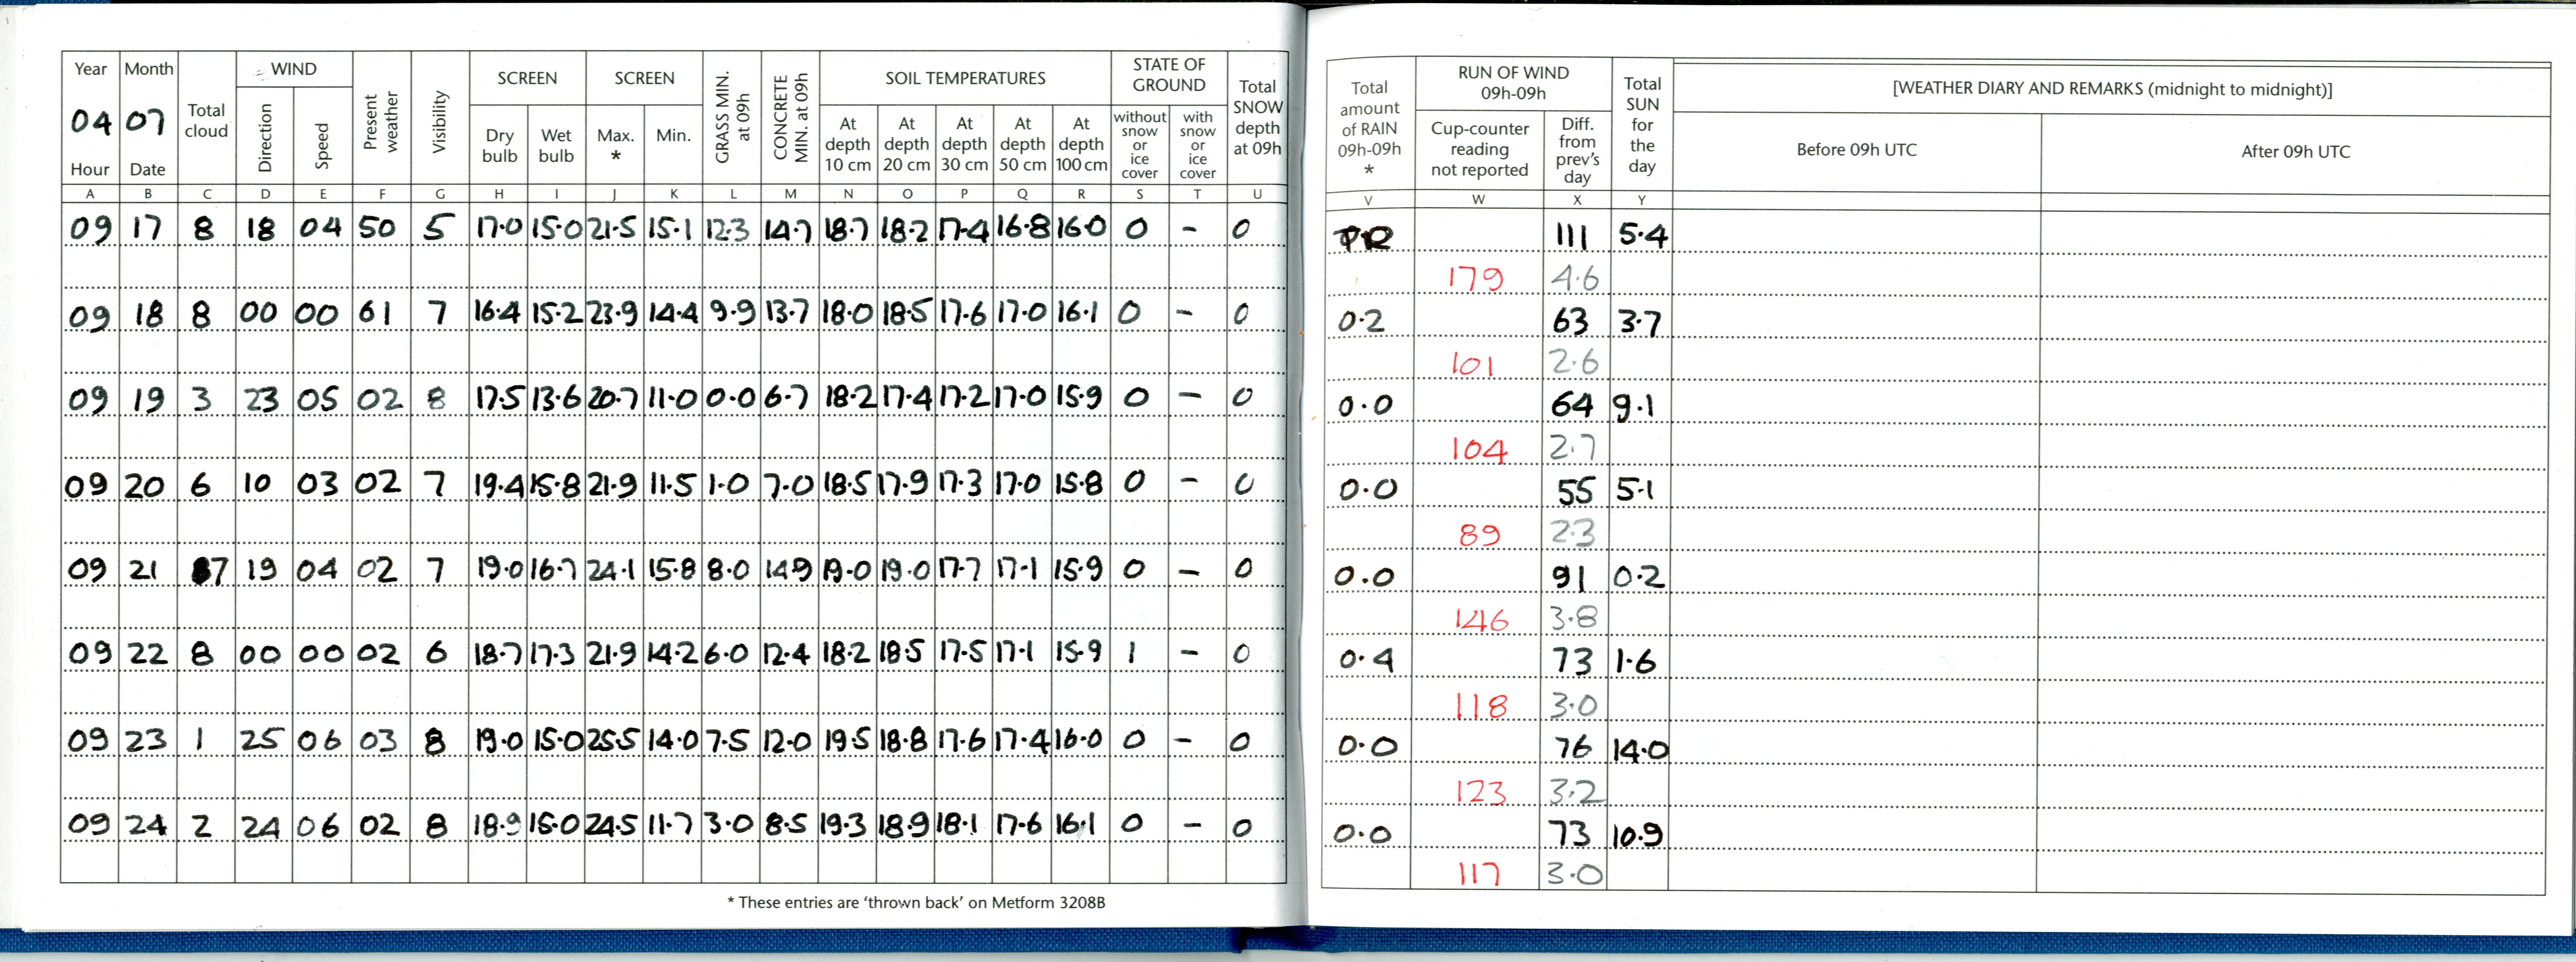 Year Month WIND SCREEN SCREEN SOIL TEMPERATURES STATE OF GROUND
04 07 Total cloud Direction Speed Present weather Visibility Dry bulb Wet bulb Max. * Min. GRASS MIN. at 09h CONCRETE MIN. at 09h At depth 10 cm At depth 20 cm At depth 30 cm At depth 50 cm At depth 100 cm without snow or ice cover with snow or ice cover Total SNOW depth at 09h
Hour Date
A B C D E F G H I J K L M N O P Q R S T U
09 17 8 18 04 50 5 17.0 15.0 21.5 15.1 12.3 14.7 18.7 18.2 17.4 16.8 16.0 0 - 0
09 18 8 00 00 61 7 16.4 15.2 23.9 14.4 9.9 13.7 18.0 18.5 17.6 17.0 16.1 0 - 0
09 19 3 23 05 02 8 17.5 13.6 20.7 11.0 0.0 6.7 18.2 17.4 17.2 17.0 15.9 0 - 0
09 20 6 10 03 02 7 19.4 15.8 21.9 11.5 1.0 7.0 18.5 17.9 17.3 17.0 15.8 0 - 0
09 21 7 19 04 02 7 19.0 16.7 24.1 15.8 8.0 14.9 19.0 19.0 17.7 17.1 15.9 0 - 0
09 22 8 00 00 02 6 18.7 17.3 21.9 14.2 6.0 12.4 18.2 18.5 17.5 17.1 15.9 1 - 0
09 23 1 25 06 03 8 19.0 15.0 25.5 14.0 7.5 12.0 19.5 18.8 17.6 17.4 16.0 0 - 0
09 24 2 24 06 02 8 18.9 15.0 24.5 11.7 3.0 8.5 19.3 18.9 18.1 17.6 16.1 0 - 0
* These entries are 'thrown back' on Metform 3208B
Total amount of RAIN 09h-09h * RUN OF WIND 09h-09h Total SUN for the day [WEATHER DIARY AND REMARKS (midnight to midnight)]
Cup-counter reading not reported Diff. from prev's day Before 09h UTC After 09h UTC
V W X Y
111 5.4
179 4.6
0.2 63 3.7
101 2.6
0.0 64 9.1
104 2.7
0.0 55 5.1
89 2.3
0.0 91 0.2
146 3.8
0.4 73 1.6
118 3.0
0.0 76 14.0
123 3.2
0.0 73 10.9
117 3.0